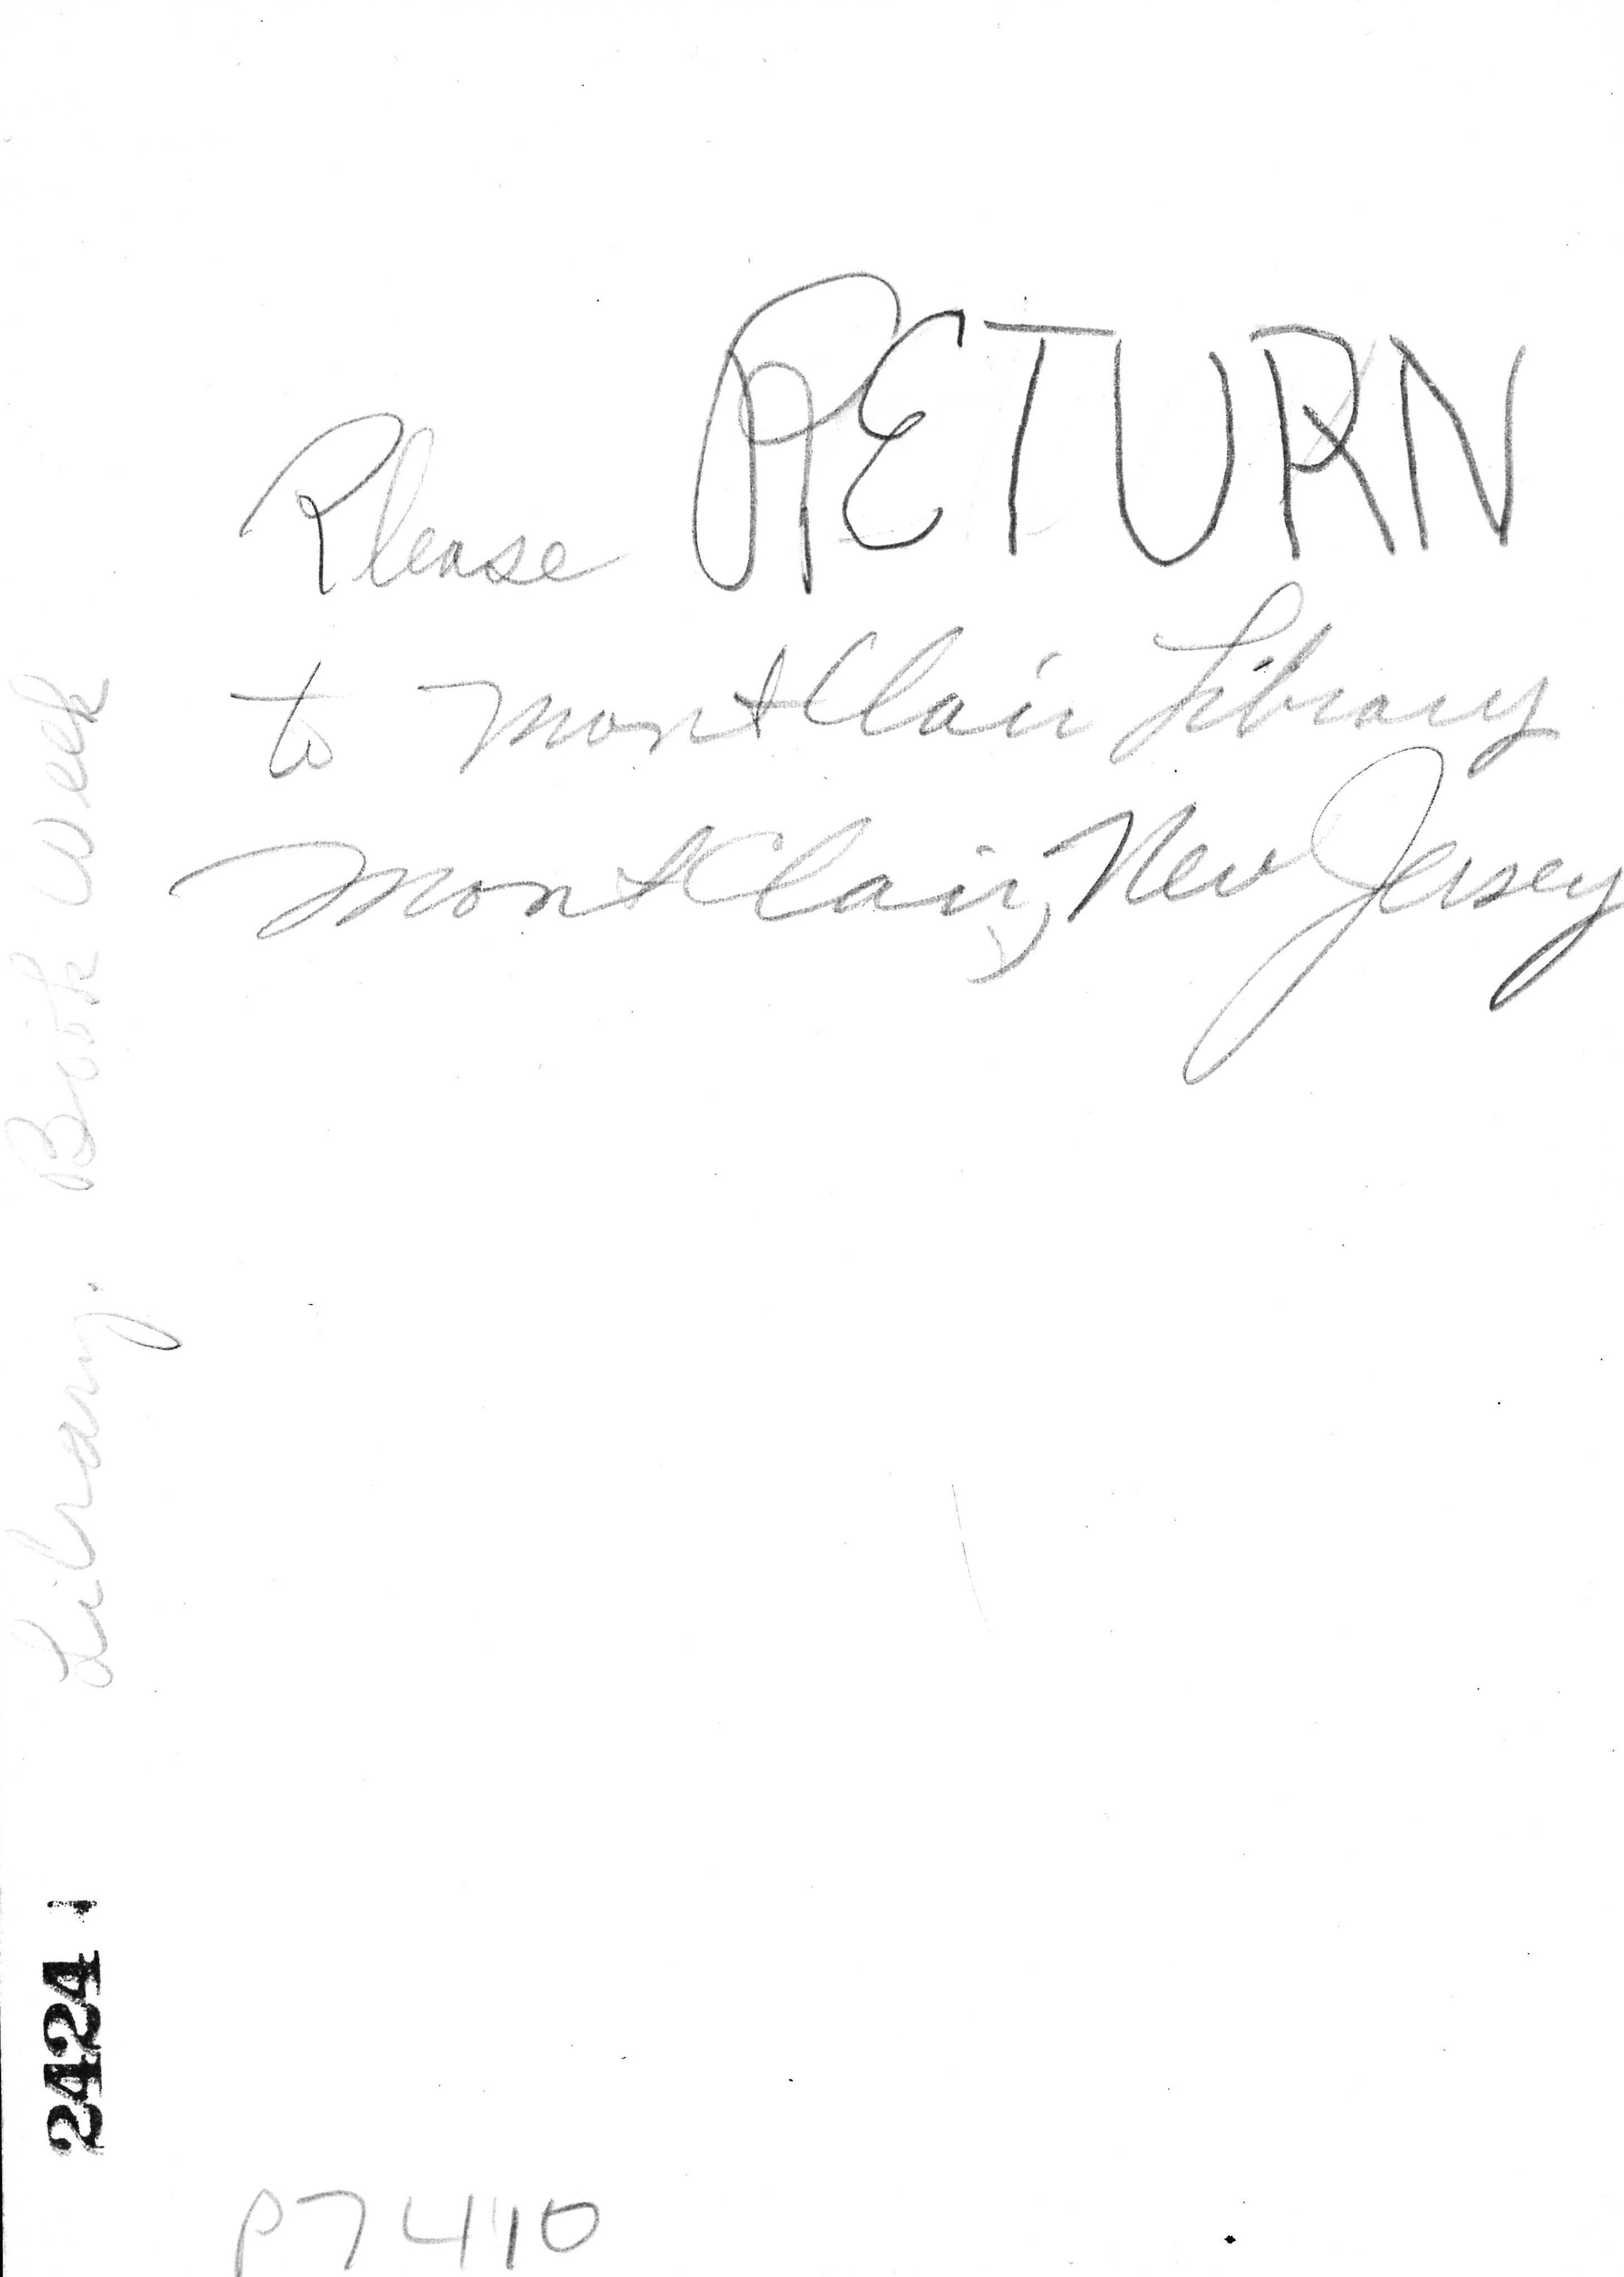 Please RETURN
to MontClair Library
MontClair, New Jersey
Library. Book Week
2424
P7410